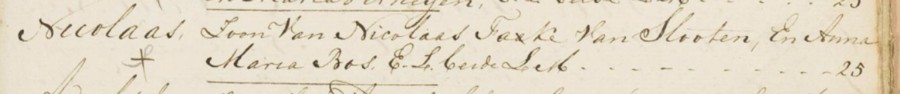 Nicolaas, Zoon Van Nicolaas Faxke Van Slooten, En Anna
Maria Bos. E. L. beide - - - - - - - - - - - - 25